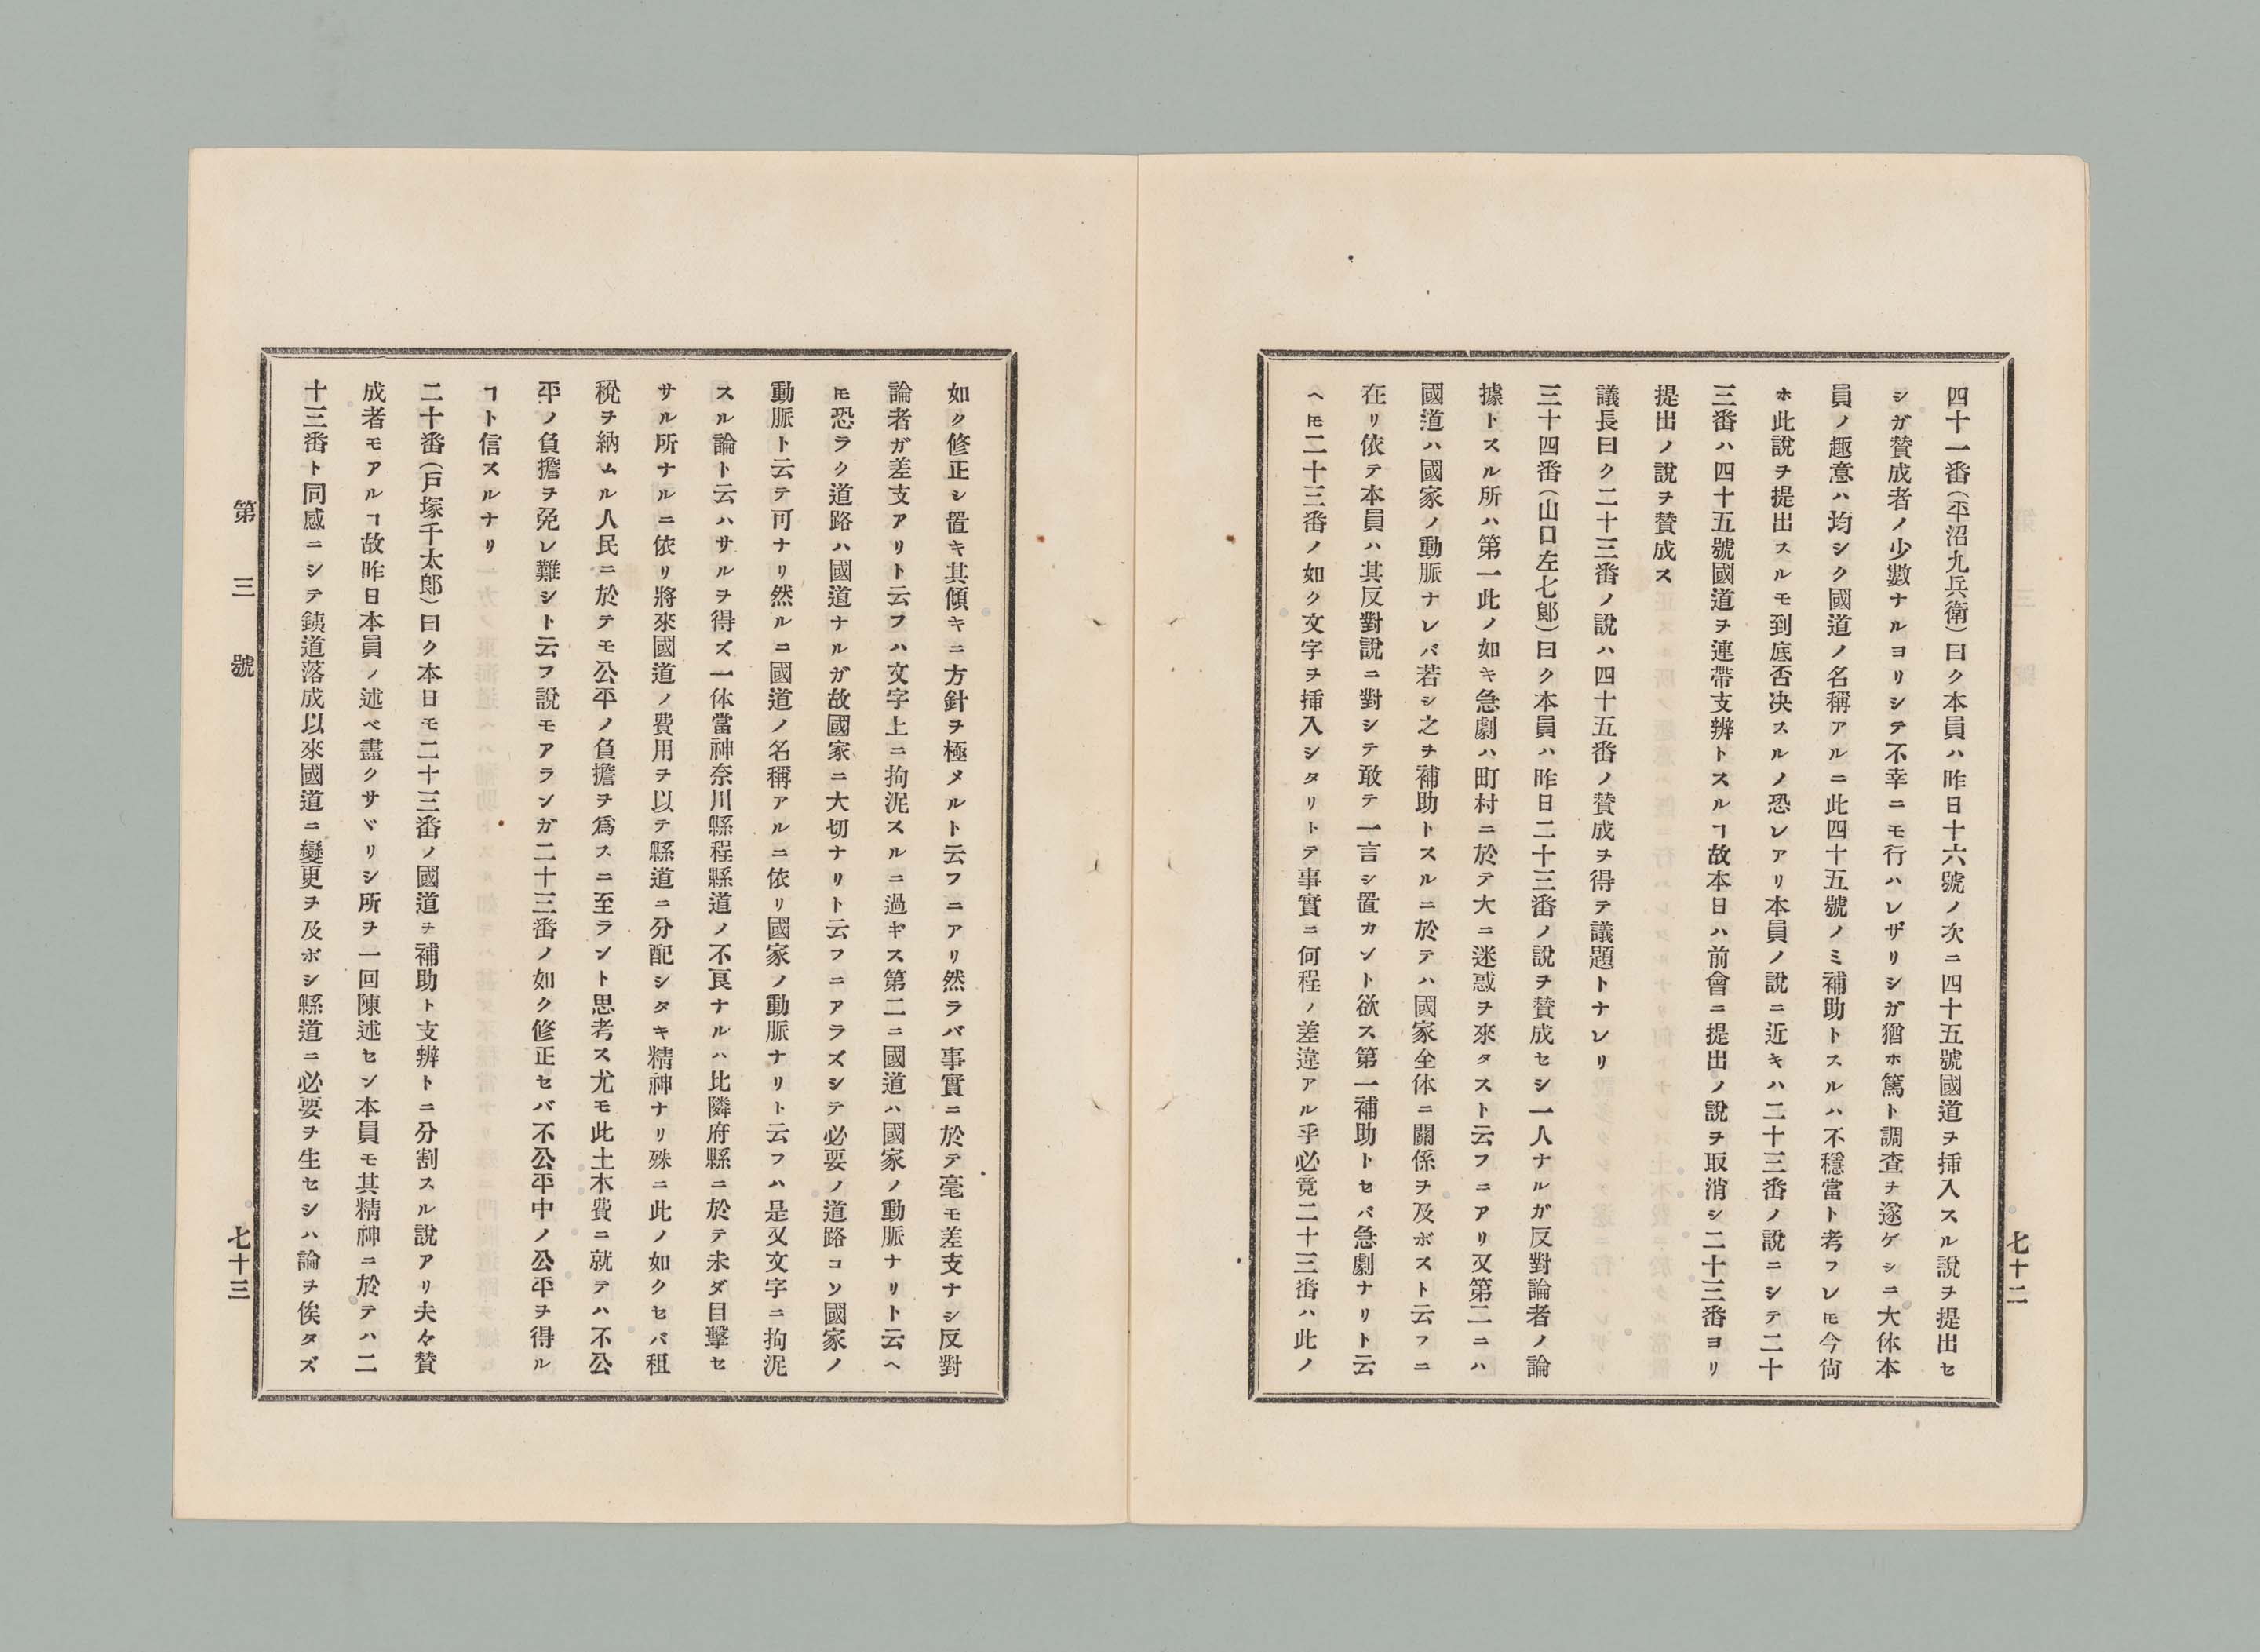 四十一番（平沼九兵衛）曰ク本員ハ昨日十六號ノ次ニ四十五號國道ヲ挿入スル說ヲ提出セ
シガ賛成者ノ少數ナルヨリシテ不幸ニモ行ハレザリシガ猶ホ篤ト調查ヲ遂ゲシニ大体本
員ノ趣意ハ均シク國道ノ名稱アルニ此四十五號ノミ補助トスルハ不穩當ト考フレ𪜈今尙
ホ此說ヲ提出スルモ到底否决スルノ恐レアリ本員ノ說ニ近キハ二十三番ノ說ニシテ二十
三番ハ四十五號國道ヲ連帶支辨トスルヿ故本日ハ前會ニ提出ノ說ヲ取消シ二十三番ヨリ
提出ノ說ヲ賛成ス
議長曰ク二十三番ノ說ハ四十五番ノ賛成ヲ得テ議題トナレリ
三十四番（山口左七郎）曰ク本員ハ昨日二十三番ノ說ヲ賛成セシ一人ナルガ反對論者ノ論
據トスル所ハ第一此ノ如キ急劇ハ町村ニ於テ大ニ迷惑ヲ來タスト云フニアリ又第二ニハ
國道ハ國家ノ動脈ナレバ若シ之ヲ補助トスルニ於テハ國家全体ニ關係ヲ及ボスト云フニ
在リ依テ本員ハ其反對說ニ對シテ敢テ一言シ置カント欲ス第一補助トセバ急劇ナリト云
ヘ𪜈二十三番ノ如ク文字ヲ挿入シタリトテ事實ニ何程ノ差違アル乎必竟二十三番ハ此ノ
七十二
如ク修正シ置キ其傾キニ方針ヲ極メルト云フニアリ然ラバ事實ニ於テ毫モ差支ナシ反對
論者ガ差支アリト云フハ文字上ニ拘泥スルニ過ギス第二ニ國道ハ國家ノ動脈ナリト云ヘ
𪜈恐ラク道路ハ國道ナルガ故國家ニ大切ナリト云フニアラズシテ必要ノ道路コソ國家ノ
動脈ト云テ可ナリ然ルニ國道ノ名稱アルニ依リ國家ノ動脈ナリト云フハ是又文字ニ拘泥
スル論ト云ハサルヲ得ズ一体當神奈川縣程縣道ノ不良ナルハ比隣府縣ニ於テ未ダ目擊セ
サル所ナルニ依リ將來國道ノ費用ヲ以テ縣道ニ分配シタキ精神ナリ殊ニ此ノ如クセバ租
稅ヲ納ムル人民ニ於テモ公平ノ負擔ヲ爲スニ至ラント思考ス尤モ此土木費ニ就テハ不公
平ノ負擔ヲ免レ難シト云フ說モアランガ二十三番ノ如ク修正セバ不公平中ノ公平ヲ得ル
ヿト信スルナリ
二十番（戸塚千太郎）曰ク本日モ二十三番ノ國道ヲ補助ト支辨トニ分割スル說アリ夫々賛
成者モアルヿ故昨日本員ノ述ベ盡クサヾリシ所ヲ一回陳述セン本員モ其精神ニ於テハ二
十三番ト同感ニシテ銕道落成以來國道ニ變更ヲ及ボシ縣道ニ必要ヲ生セシハ論ヲ俟タズ
第三號
七十三